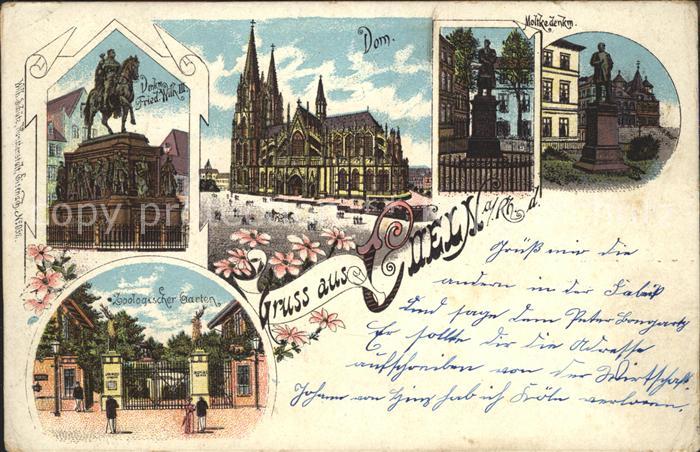 Denkm.
Fried. Wilh. III.
Dom.
Moltkedenkm.
Zoologischer Garten.
Gruss aus COELN a/Rh. d.
Grüß mir die
andern in der Fabrik
Und sage dem Peter Bongartz
Er sollte dir die Adresse
aufschreiben von der Wirtschaft
Johann von hab ich Köln verloren.
copyright